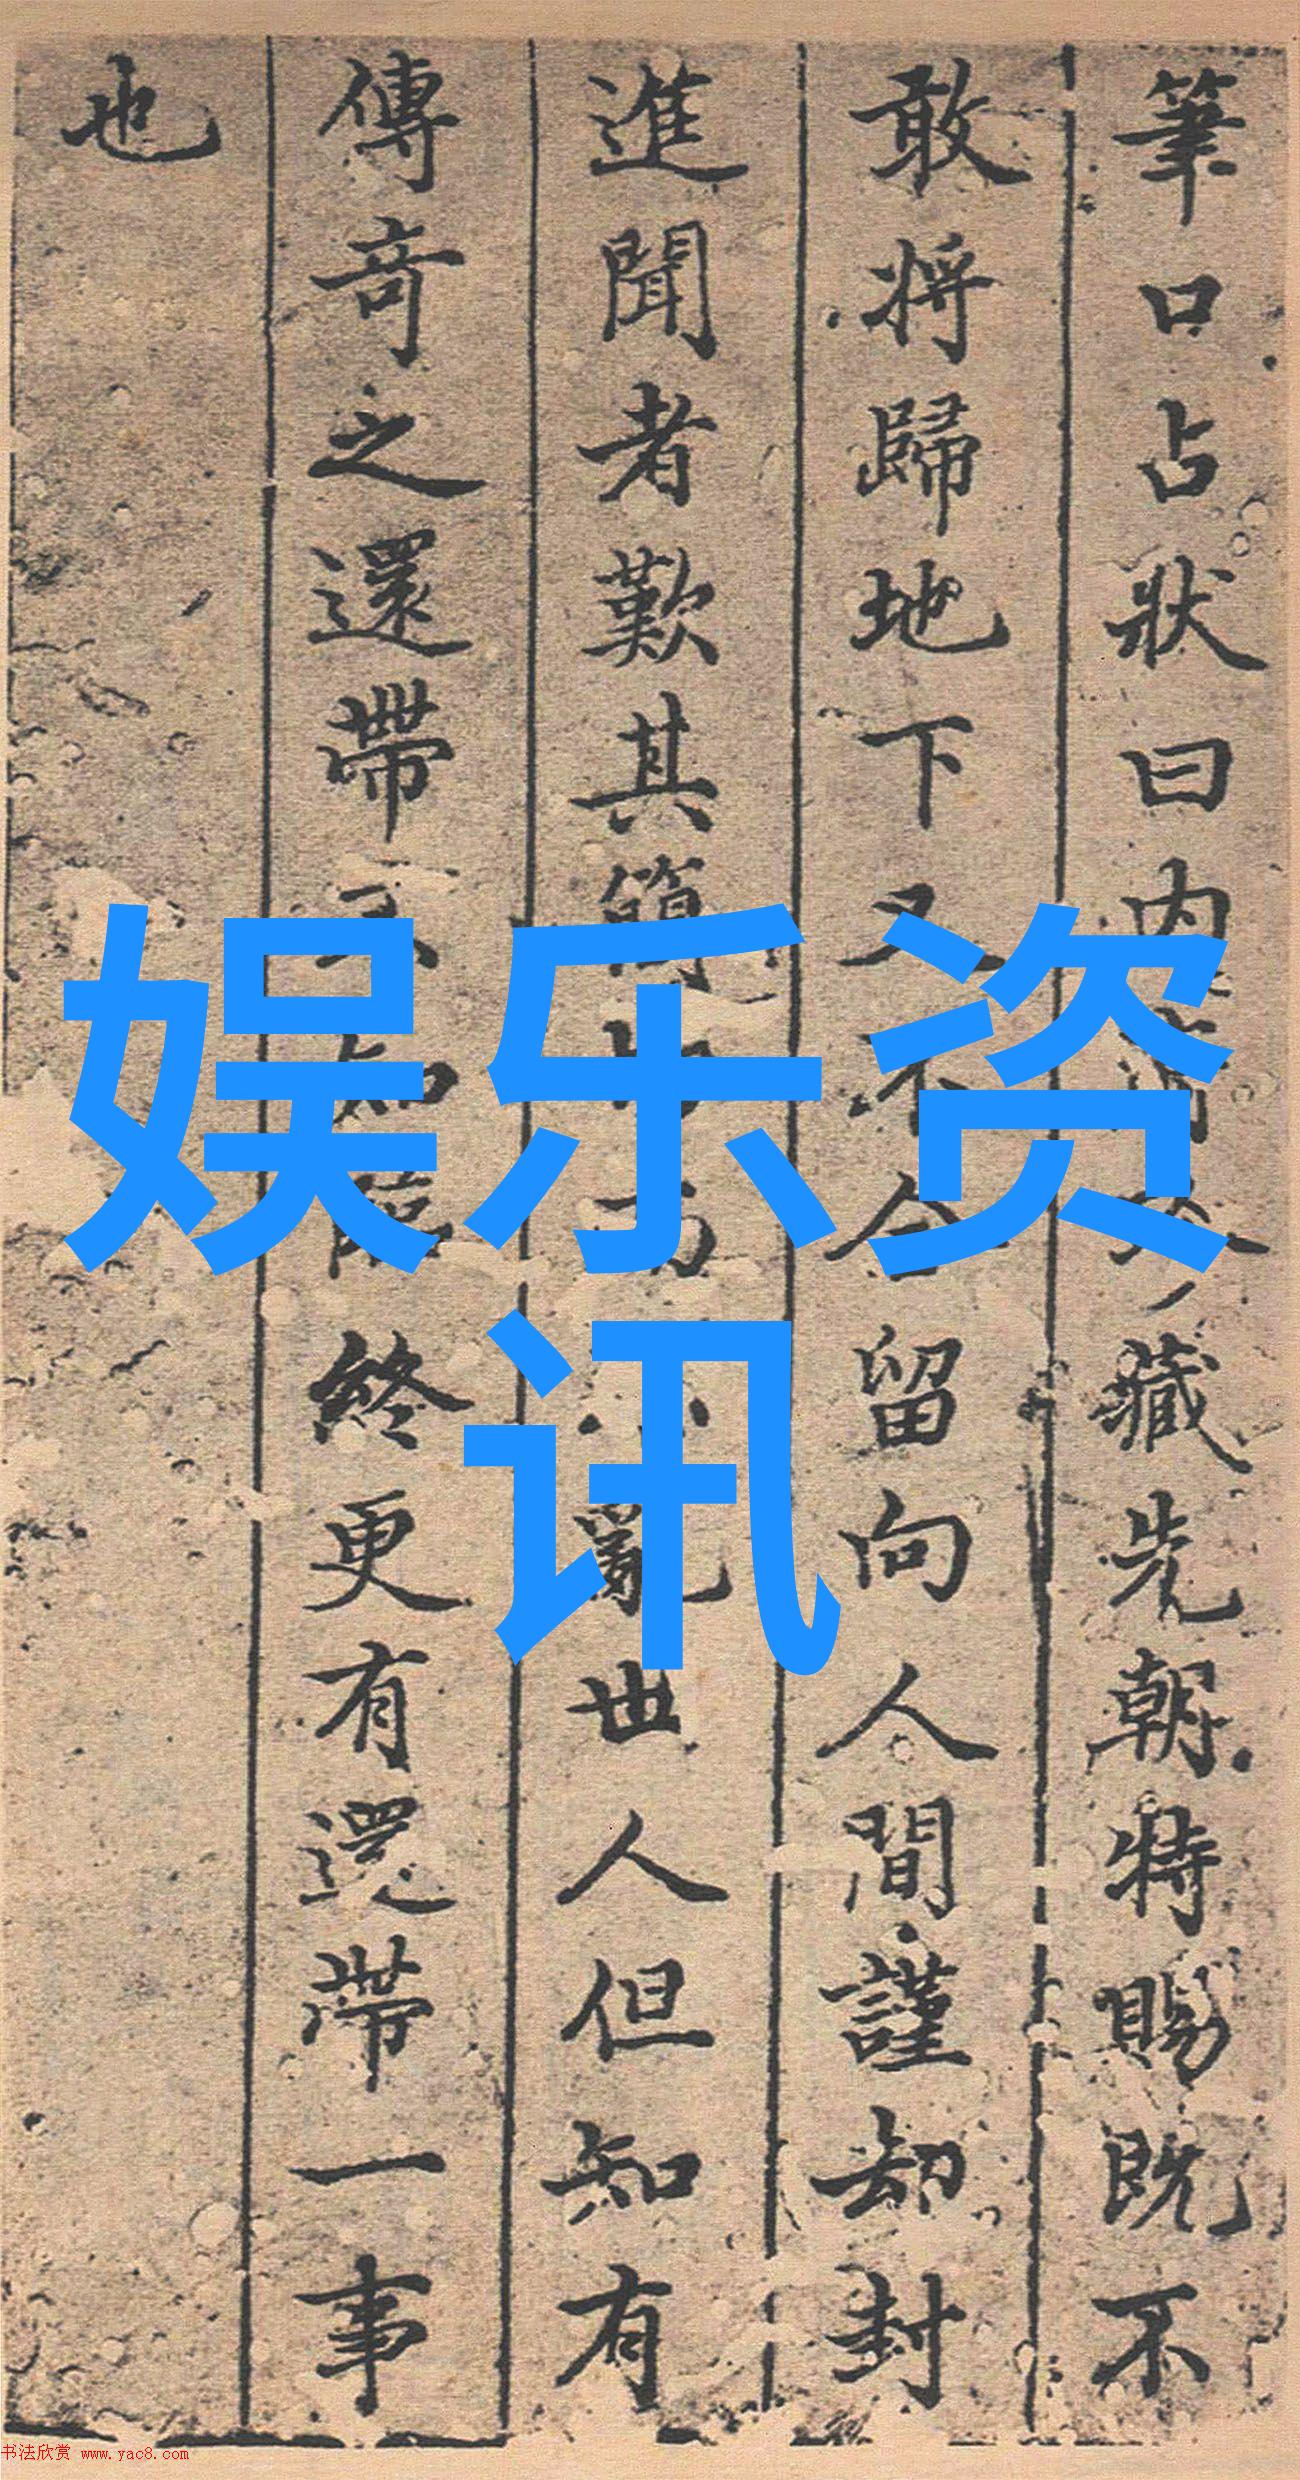 筆口占狀曰内
藏先朝特賜既不
敢將歸地下又不合留向人間謹却封
進聞者歎其簡
亂也人但知有
傳奇之還帶
臨終更有還帶一事
也
娱乐资
讯
书法欣赏 www.yac8.com